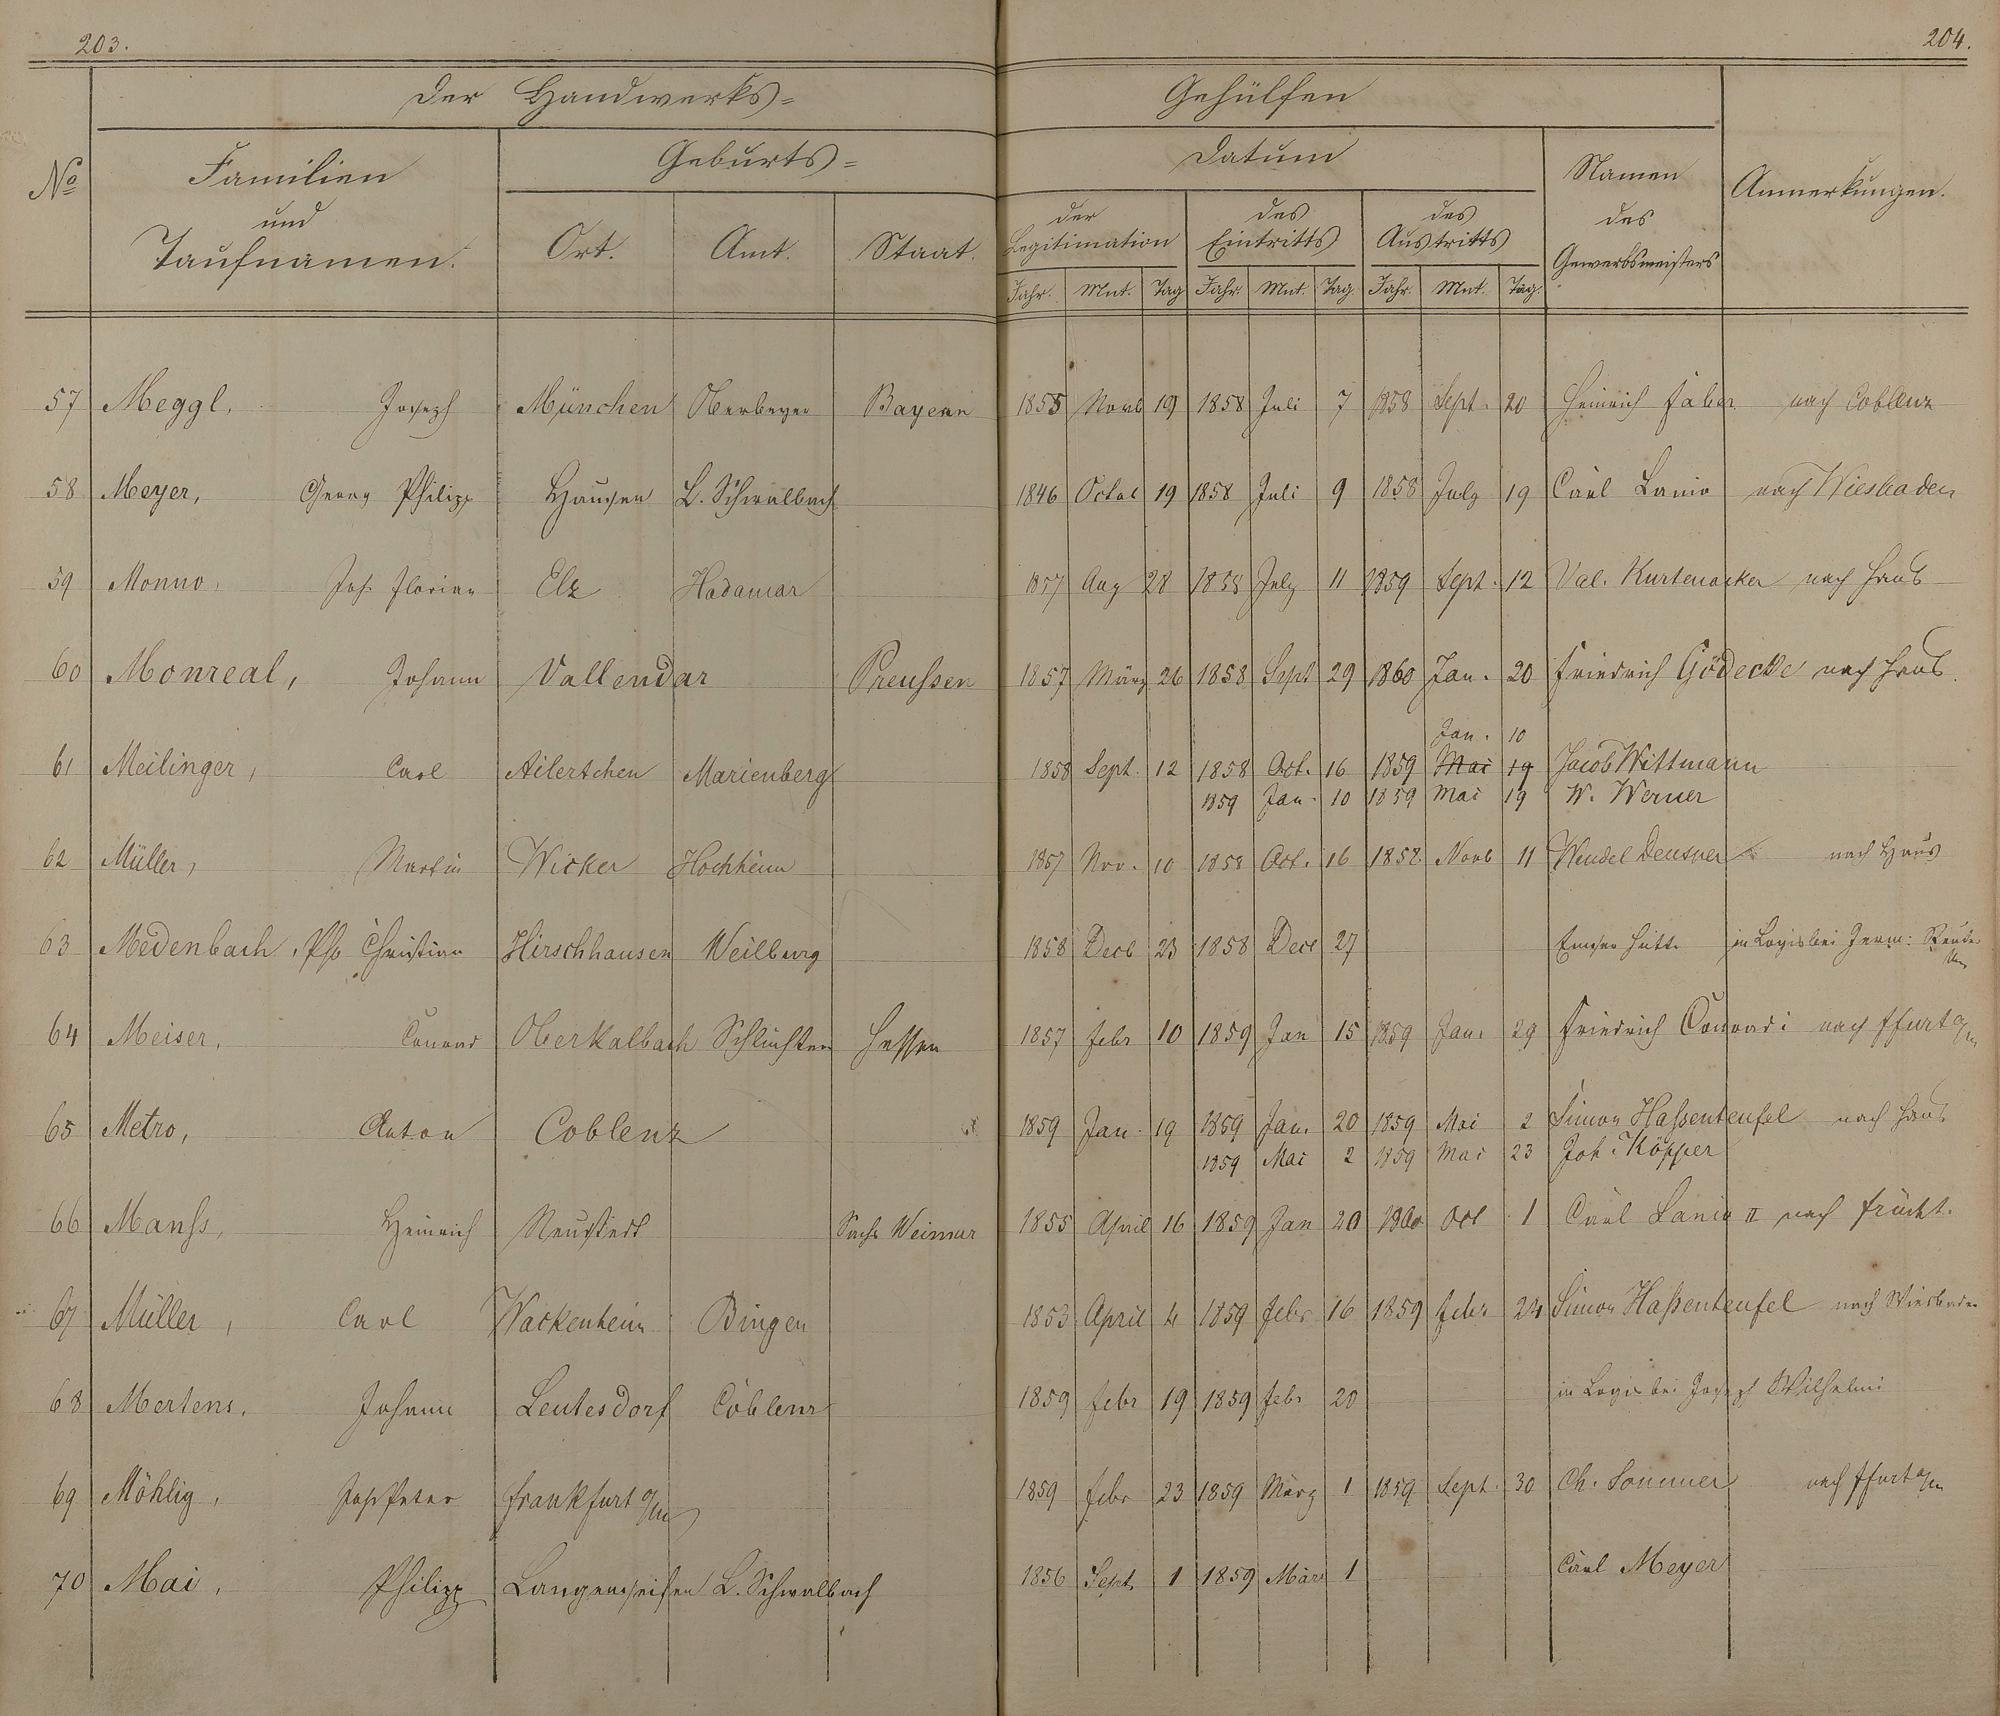 203.
204.
Der Handwerks=
Gehülfen
No
Familien
und
Taufnamen.
Geburts=
Ort.
Amt.
Staat.
Datum
der
Legitimation
des
Eintritts
des
Austritts
Jahr. Mnt. Tag Jahr. Mnt. Tag. Jahr. Mnt. Tag.
Namen
des
Gewerbsmeisters
Anmerkungen.
57 Meggl, Joseph München Oberbeyer Bayern 1855 Novb 19 1858 Juli 7 1858 Sept. 20 Heinrich Faber nach Coblenz
58 Meyer, Georg Philipp Hausen L. Schwalbach 1846 Octob 19 1858 Juli 9 1858 July 19 Carl Lanio nach Wiesbaden
59 Monno, Joh. Florian Elz Hadamar 1857 Aug 28 1858 July 11 1859 Sept. 12 Val. Kurtenacker nach Haus
60 Monreal, Johann Vallendar Preußen 1857 März 26 1858 Sept 29 1860 Jan. 20 Friedrich Gödecke nach Haus.
Jan. 10
61 Meilinger, Carl Ailertchen Marienberg 1858 Sept. 12 1858 Oct. 16 1859 Mai 19 Jacob Wittmann
1859 Jan. 10 1859 Mai 19 W. Werner
62 Müller, Martin Wicker Hochheim 1857 Nov. 10 1858 Oct. 16 1858 Novb 11 Wendel Deusner nach Haus
63 Medenbach, Ph Christian Hirschhausen Weilburg 1858 Decb 23 1858 Dece 27 Emser Hütte in Logis bei Herm:
64 Meiser, Conrad Oberkalbach Schlüchtern Hessen 1857 Febr 10 1859 Jan 15 1859 Jan. 29 Friedrich Conradi nach Ffurt a/m
65 Metro, Anton Coblenz 1859 Jan. 19 1859 Jan. 20 1859 Mai 2 Simon Haßenteufel nach Haus
1859 Mai 2 1859 Mai 23 Joh. Köpper
66 Manß, Heinrich Neustadt Sachs Weimar 1855 April 16 1859 Jan 20 1860 Oct 1 Carl Lanio II nach Frücht.
67 Müller, Carl Wackenheim Bingen 1853 April 4 1859 Febr 16 1859 Febr 24 Simon Haßenteufel nach Wiesbaden
68 Mertens, Johann Leutesdorf Coblenz 1859 Febr 19 1859 Febr 20 in Logis bei Joseph Wilhelmi
69 Möhlig, Joh Peter Frankfurt a/m 1859 Febr 23 1859 März 1 1859 Sept. 30 Ch. Sommer nach Ffurt a/m
70 Mai, Philipp Langenseifen L. Schwalbach 1856 Sept. 1 1859 März 1 Carl Meyer